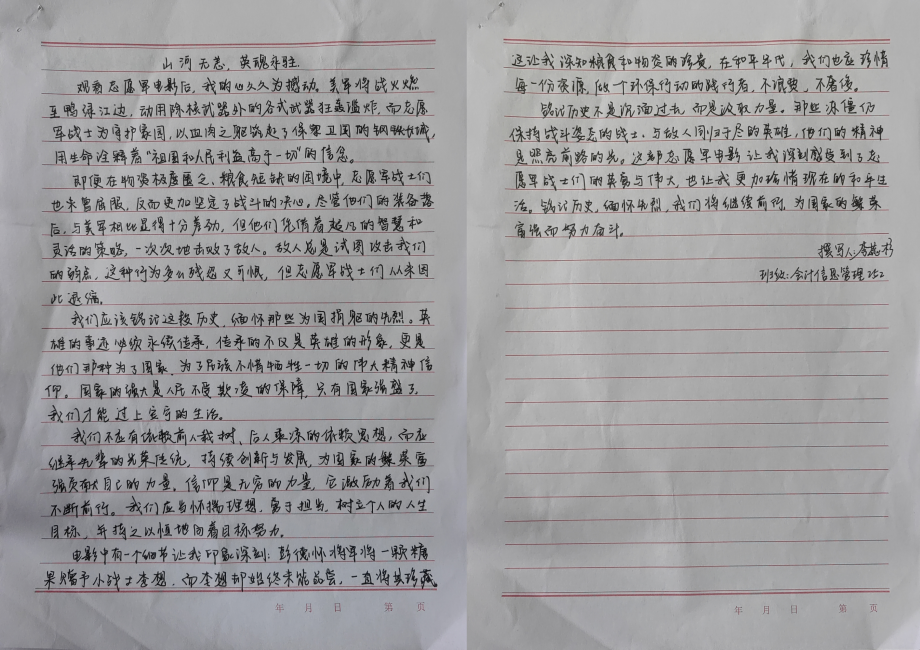 山河无恙，英魂永驻.
观看志愿军电影后，我的心久久为撼动。美军将战火燃
至鸭绿江边，动用除核武器外的各式武器狂轰滥炸，而志愿
军战士为守护家园，以血肉之躯筑起了保家卫国的钢铁长城，
用生命诠释着“祖国和人民利益高于一切”的信念。
即便在物资极度匮乏、粮食短缺的困境中，志愿军战士们
也未曾屈服，反而更加坚定了战斗的决心，尽管他们的装备落
后，与美军相比显得十分劣动，但他们凭借着超凡的智慧和
灵活的策略，一次次地击败了敌人。敌人总是试图攻击我们
的弱点，这种行为多么残忍又可恨，但志愿军战士们从未因
此退缩。
我们应该铭记这段历史，缅怀那些为国捐躯的先烈。英
雄的事迹必须永续传承，传承的不仅是英雄的形象，更是
他们那种为了国家，为了民族不惜牺牲一切的伟大精神信
仰。国家的强大是人民不受欺凌的保障，只有国家强盛了，
我们才能过上安宁的生活。
我们不应有依赖前人栽树、后人乘凉的依赖思想，而应
继承先辈的光荣传统，持续创新与发展，为国家的繁荣富
强贡献自己的力量。信仰是无穷的力量，它激励着我们
不断前行。我们应当怀揣理想，勇于担当，树立个人的人生
目标，并持之以恒地向着目标努力。
电影中有一个细节让我印象深刻：彭德怀将军将一颗糖
果赠予小战士李想，而李想却始终未能品尝，一直将其珍藏
年 月 日 第 页
这让我深知粮食和物资的珍贵，在和平年代，我们也应珍惜
每一份资源，做一个环保行动的践行者，不浪费，不奢侈。
铭记历史不是沉湎过去，而是汲取力量。那些冻僵仍
保持战斗姿态的战士，与敌人同归于尽的英雄，他们的精神
是照亮前路的光。这部志愿军电影让我深刻感受到了志
愿军战士们的英勇与伟大，也让我更加珍惜现在的和平生
活。铭记历史，缅怀先烈，我们将继续前行，为国家的繁荣
富强而努力奋斗。
撰写人：李蕊杉
班级：会计信息管理252
年 月 日 第 页